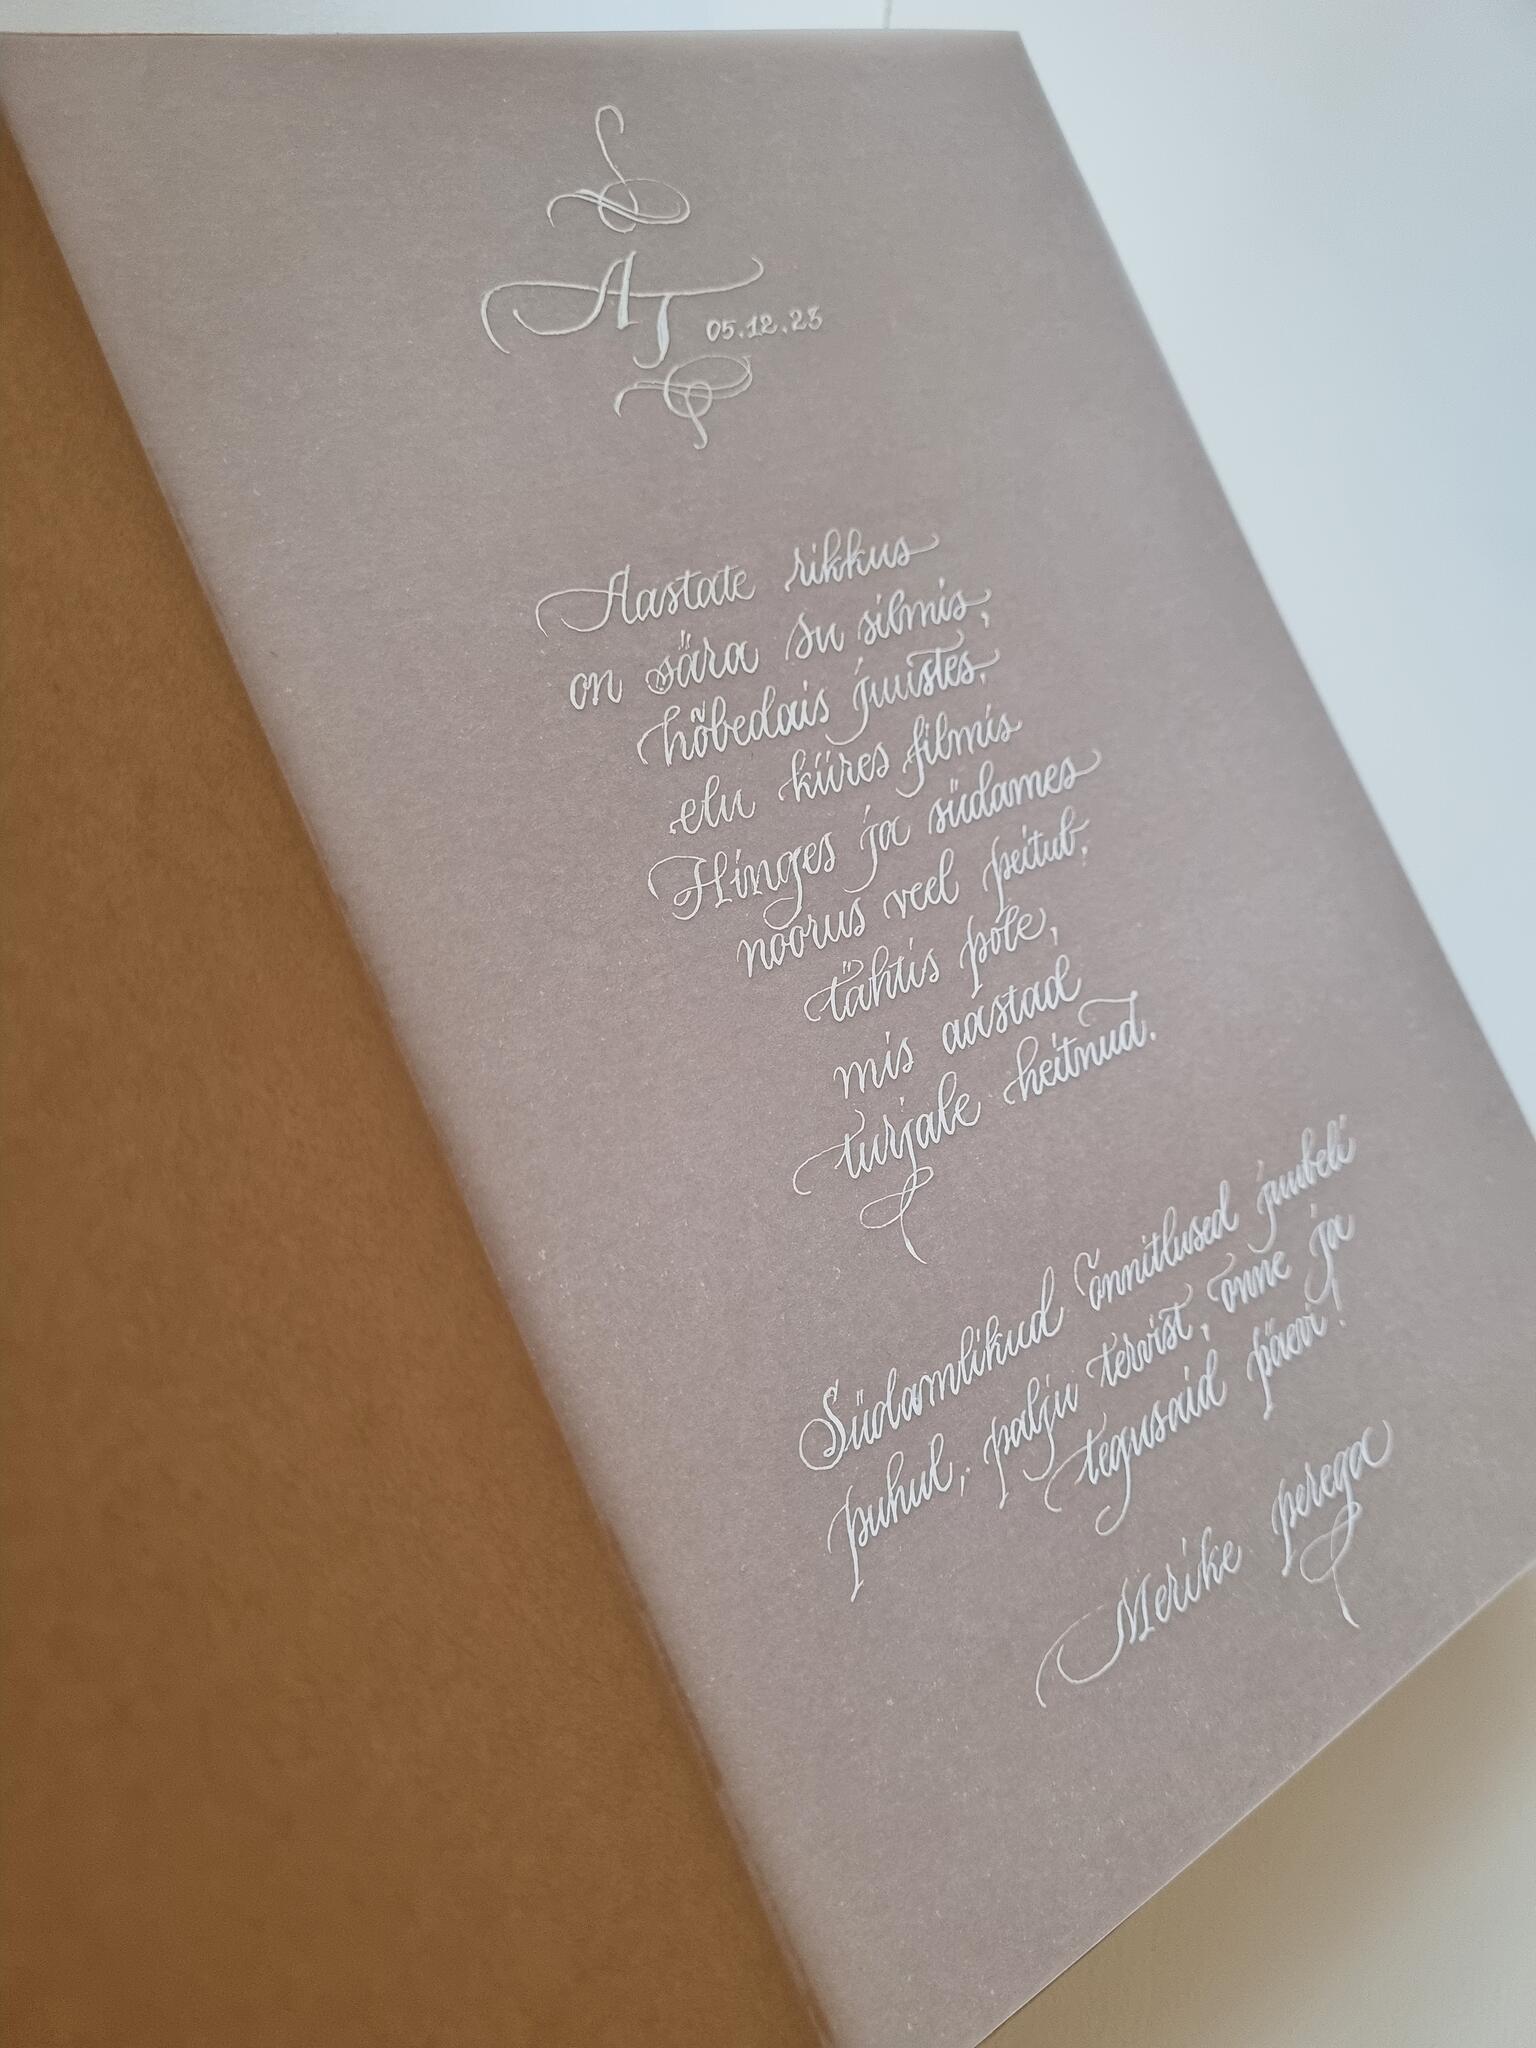 AT 05.12.23
Aastate rikkus
on sära su silmis,
hõbedais juustes.
elu kiires filmis
Hinges ja südames
noorus veel peitub,
tähtis pole,
mis aastad
turjale heitnud.
Südamlikud õnnitlused juubeli
puhul, palju tervist, õnne ja
tegusaid päevi!
Merike perega